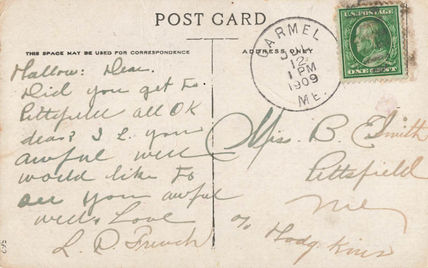 POST CARD
THIS SPACE MAY BE USED FOR CORRESPONDENCE
ADDRESS ONLY
CARMEL
12
1 PM
1909
ME.
U.S. POSTAGE
ONE CENT
Hallow: Dear.
Did you get to
Pittsfield all OK
dear? I L. you
awful well
would like to
see you awful
well Love
L. D. French
Miss. B. E Smith
Pittsfield
Me
c/o Hodgkins